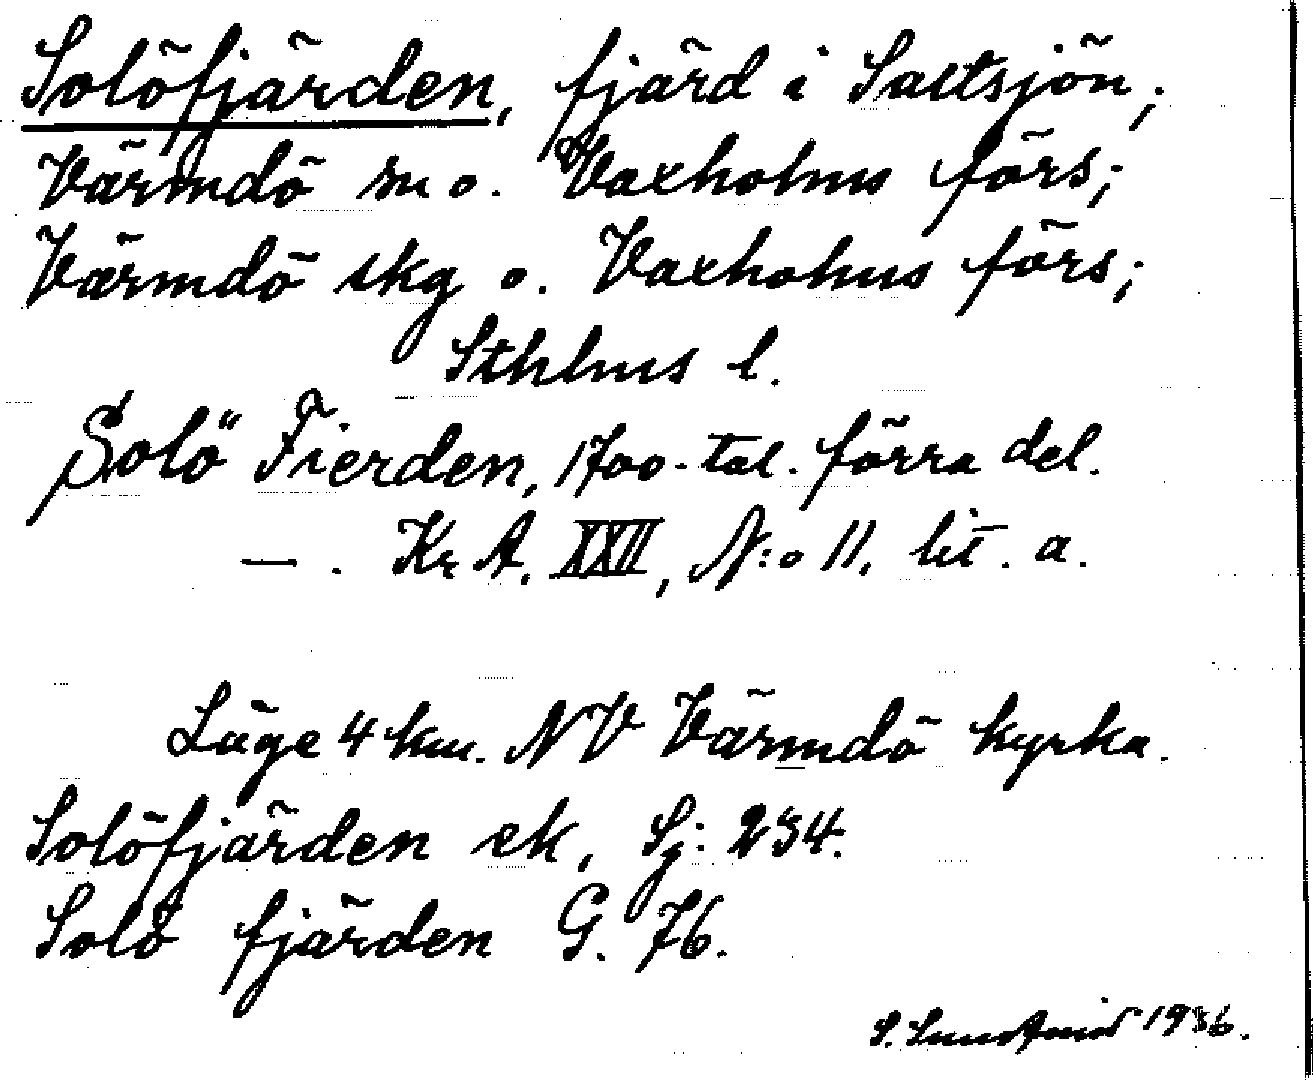 Solöfjärden, fjärd i Saltsjön;
Värmdö sn o. Vaxholms förs;
Värmdö skg o. Vaxholms förs;
Sthlms l.
Solö Fierden, 1700-tal. förra del.
— . Kr A. XXII, N:o 11. lit. a.
Läge 4 km. NV Värmdö kyrka.
Solöfjärden ek, Sj: 234.
Solö fjärden G. 76.
S. 1936.